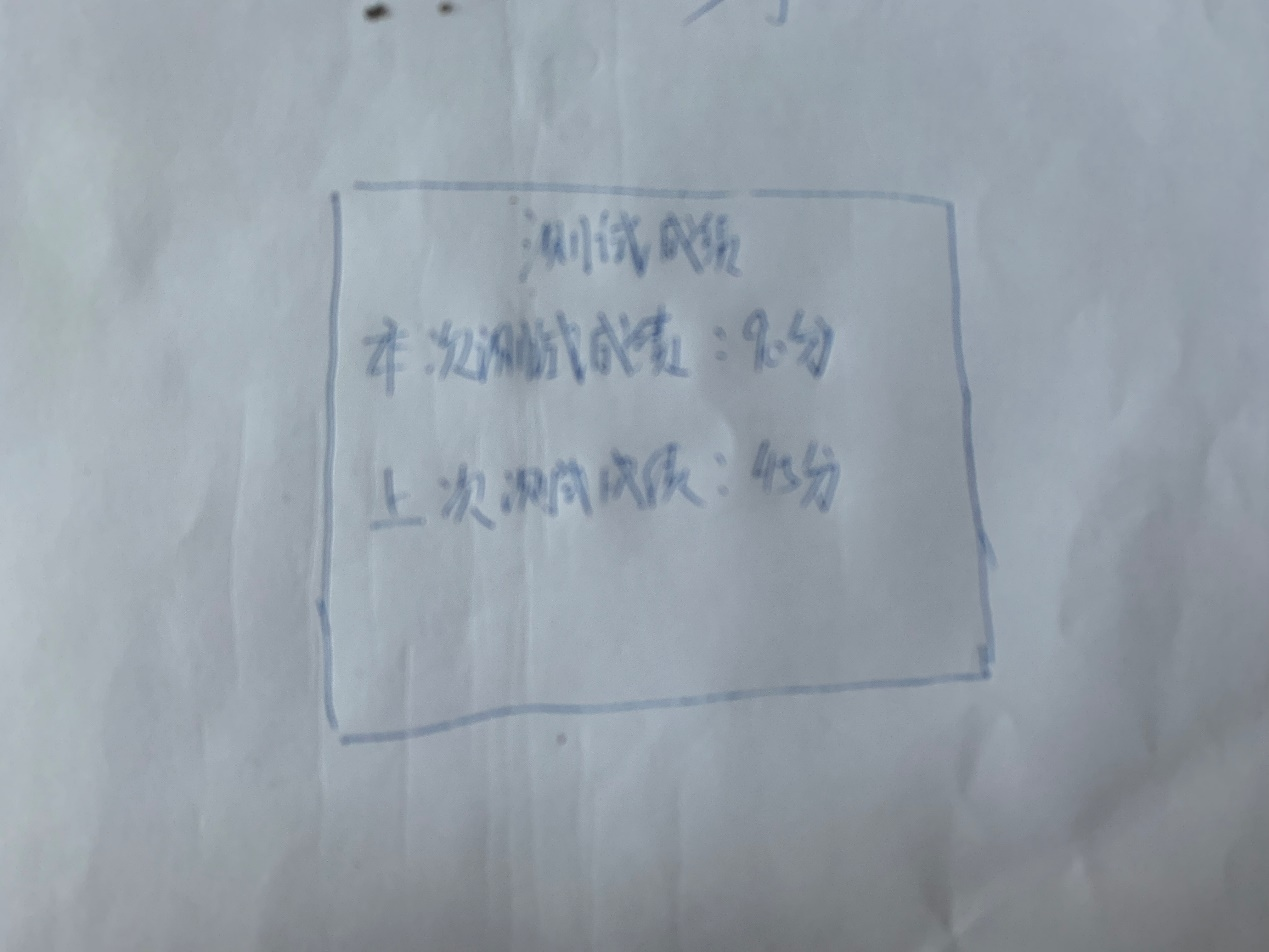 测试成绩
本次测试成绩：90分
上次测试成绩：45分